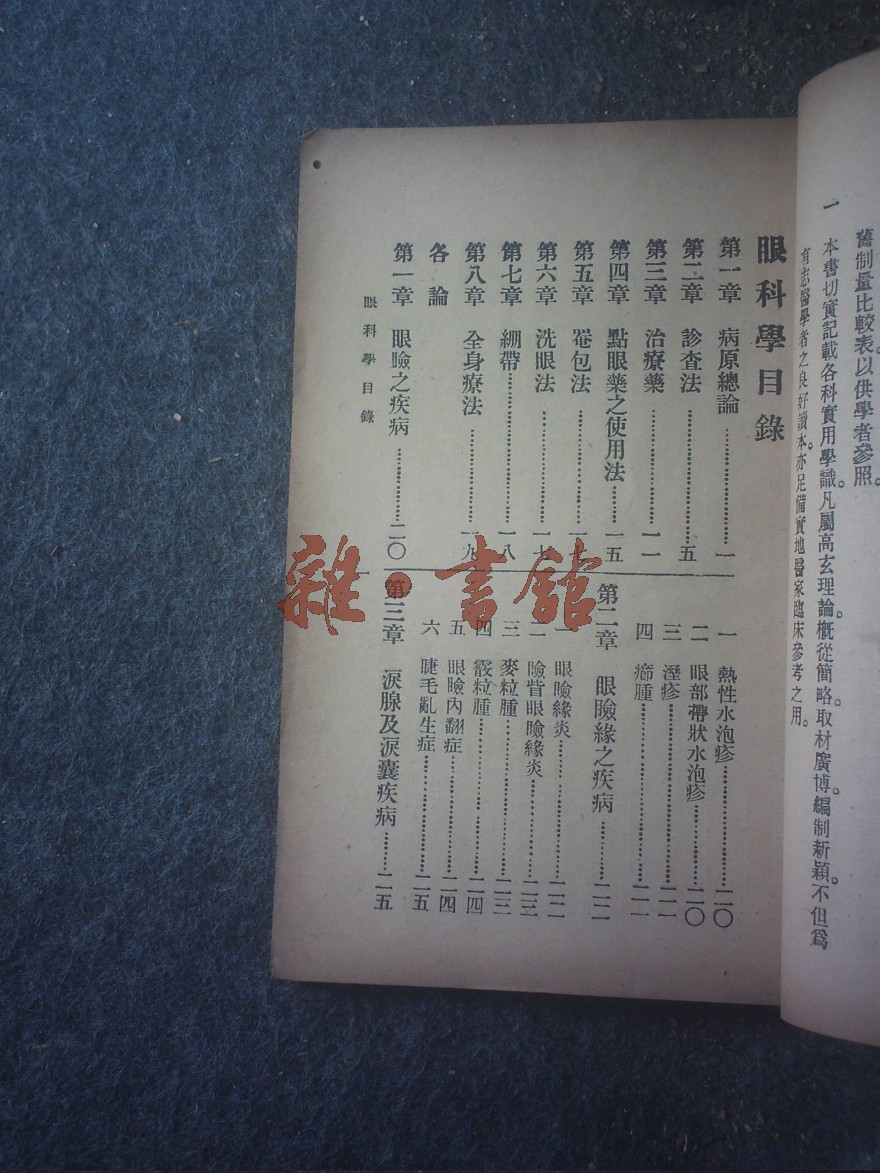 舊制量比較表。以供學者參照。
一 本書切實記載各科實用學識。凡屬高玄理論。概從簡略。取材廣博。編制新穎。不但為
有志醫學者之良好讀本。亦足備實地醫家臨床參考之用。
眼科學目錄
第一章 病原總論……一
第二章 診查法……五
第三章 治療藥……一一
第四章 點眼藥之使用法……一五
第五章 罨包法……
第六章 洗眼法……一七
第七章 綳帶……一八
第八章 全身療法……一九
各論
第一章 眼瞼之疾病……二〇
一 熱性水泡疹……二〇
二 眼部帶狀水泡疹……二〇
三 溼疹……二一
四 癤腫……二一
第二章 眼瞼緣之疾病……二二
一 眼瞼緣炎……二二
二 瞼眥眼瞼緣炎……二三
三 麥粒腫……二三
四 霰粒腫……二四
五 眼瞼內翻症……二四
六 睫毛亂生症……二五
第三章 淚腺及淚囊疾病……二五
眼科學目錄
雜·書館